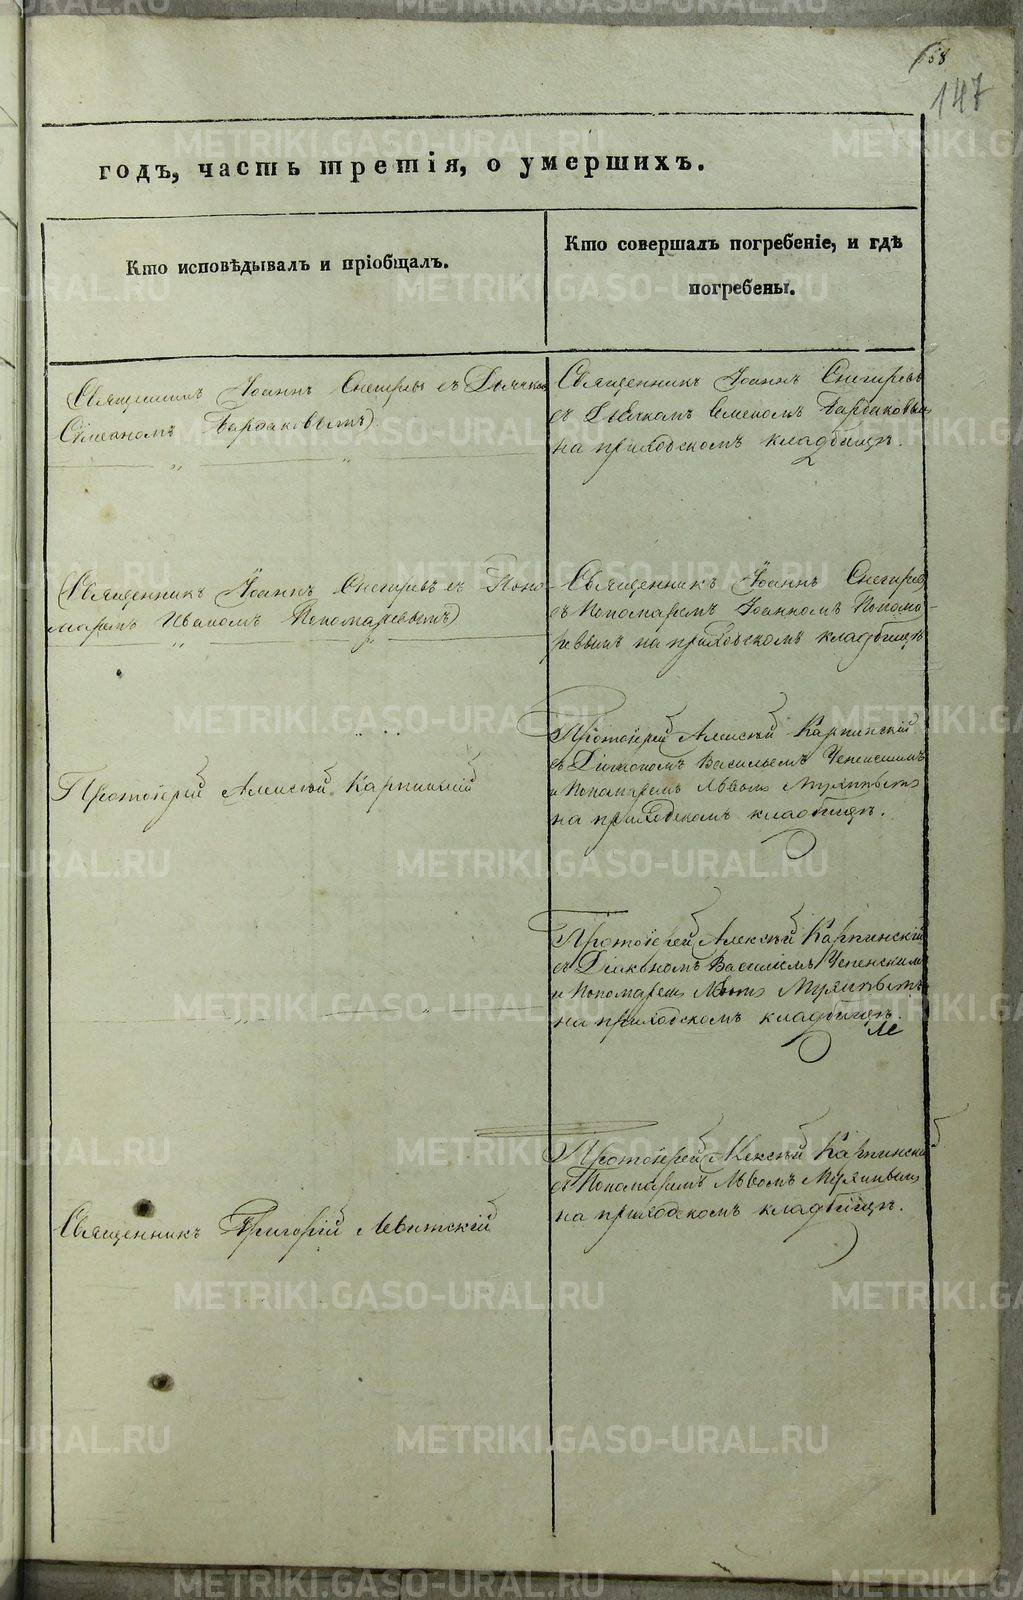 168
147
годъ, часть третія, о умершихъ.
Кто исповѣдывалъ и пріобщалъ.
Кто совершалъ погребеніе, и гдѣ
погребены.
(Священникъ Іоаннъ Снегиревъ съ Дьячком
Симеаномъ Бардаковымъ)
Священникъ Іоаннъ Снегиревъ
съ Дьячкомъ Семеномъ Бардаковымъ
на приходскомъ кладбищѣ.
(Священникъ Іоаннъ Снегиревъ съ Поно-
маремъ Иваномъ Пономаревымъ)
Священникъ Іоаннъ Снегирев
съ Пономаремъ Іоанномъ Понома-
ревымъ на приходскомъ кладбищѣ
Протоіерей Алексѣй Карпинскій
Протоіерей Алексѣй Карпинскій
съ Діакономъ Васильемъ
и Пономаремъ Львомъ
на приходскомъ кладбищѣ.
Протоіерей Алексѣй Карпинскій
съ Діакономъ Василіемъ
и Пономаремъ Львомъ
на приходскомъ кладбищѣ.
Священникъ Григорій Левитскій
Протоіерей Алексѣй Карпинскій
съ Пономаремъ Львомъ
на приходскомъ кладбищѣ.
METRIKI.GASO-URAL.RU